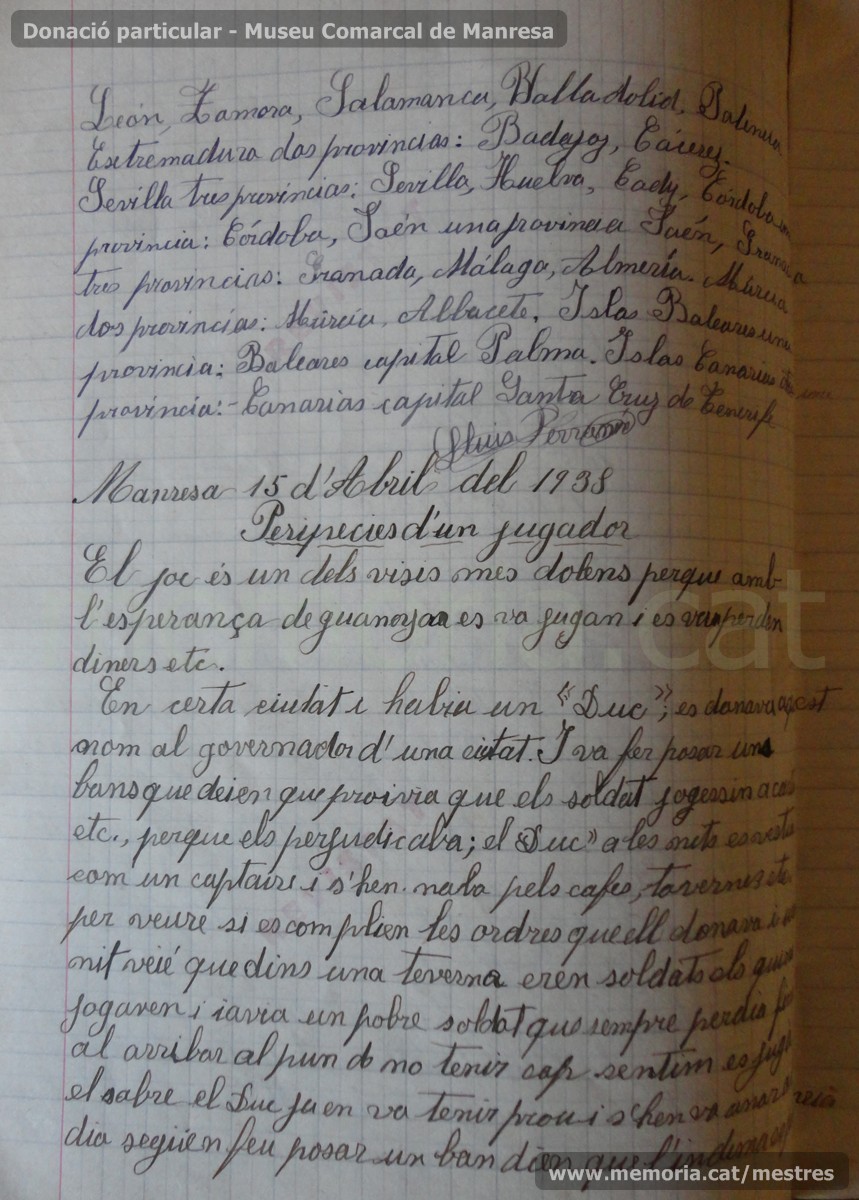 Donació particular - Museu Comarcal de Manresa
León, Zamora, Salamanca, Valladolid, Palencia
Extremadura dos provincias: Badajoz, Cácerez.
Sevilla tres provincias: Sevilla, Huelva, Cady, Córdoba una
provincia: Córdoba, Jaén una provincia Jaén, Granada
tres provincias: Granada, Málaga, Almería. Múrcia
dos provincias: Múrcia, Albacete, Islas Baleares una
provincia: Baleares capital Palma. Islas Canarias
provincia:- Canarias capital Santa Cruz de Tenerife
Lluis
Manresa 15 d'Abril del 1938
Peripecies d'un jugador
El joc és un dels visis mes dolens perque amb
l'esperança de guanya es va jugan i es va perden
diners etc.
En certa ciutat i habia un «Duc»; es donava aqest
nom al governador d'una ciutat. I va fer posar uns
bans que deien que proivia que els soldat jogessin
etc., perque els perjudicaba; el «Duc» a les nits es vestia
com un captaire i s'hen naba pels cafes, tavernes etc
per veure si es complien les ordres que ell donava i
nit veié que dins una teverna eren soldats els quins
jogaven i iavia un pobre soldat que sempre perdia
al arribar al pun de no tenir cap sentim es jugà
el sabre el Duc ja en va tenir prou i s'hen va anar
dia següen feu posar un ban dien que l'indema
www.memoria.cat/mestres